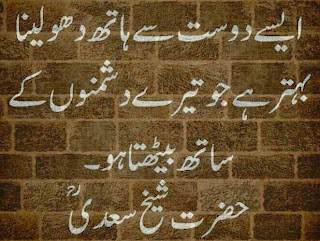 ایسے دوست سے ہاتھ دھو لینا
بہتر ہے جو تیرے دشمنوں کے
ساتھ بیٹھتا ہو۔
حضرت شیخ سعدیؒ